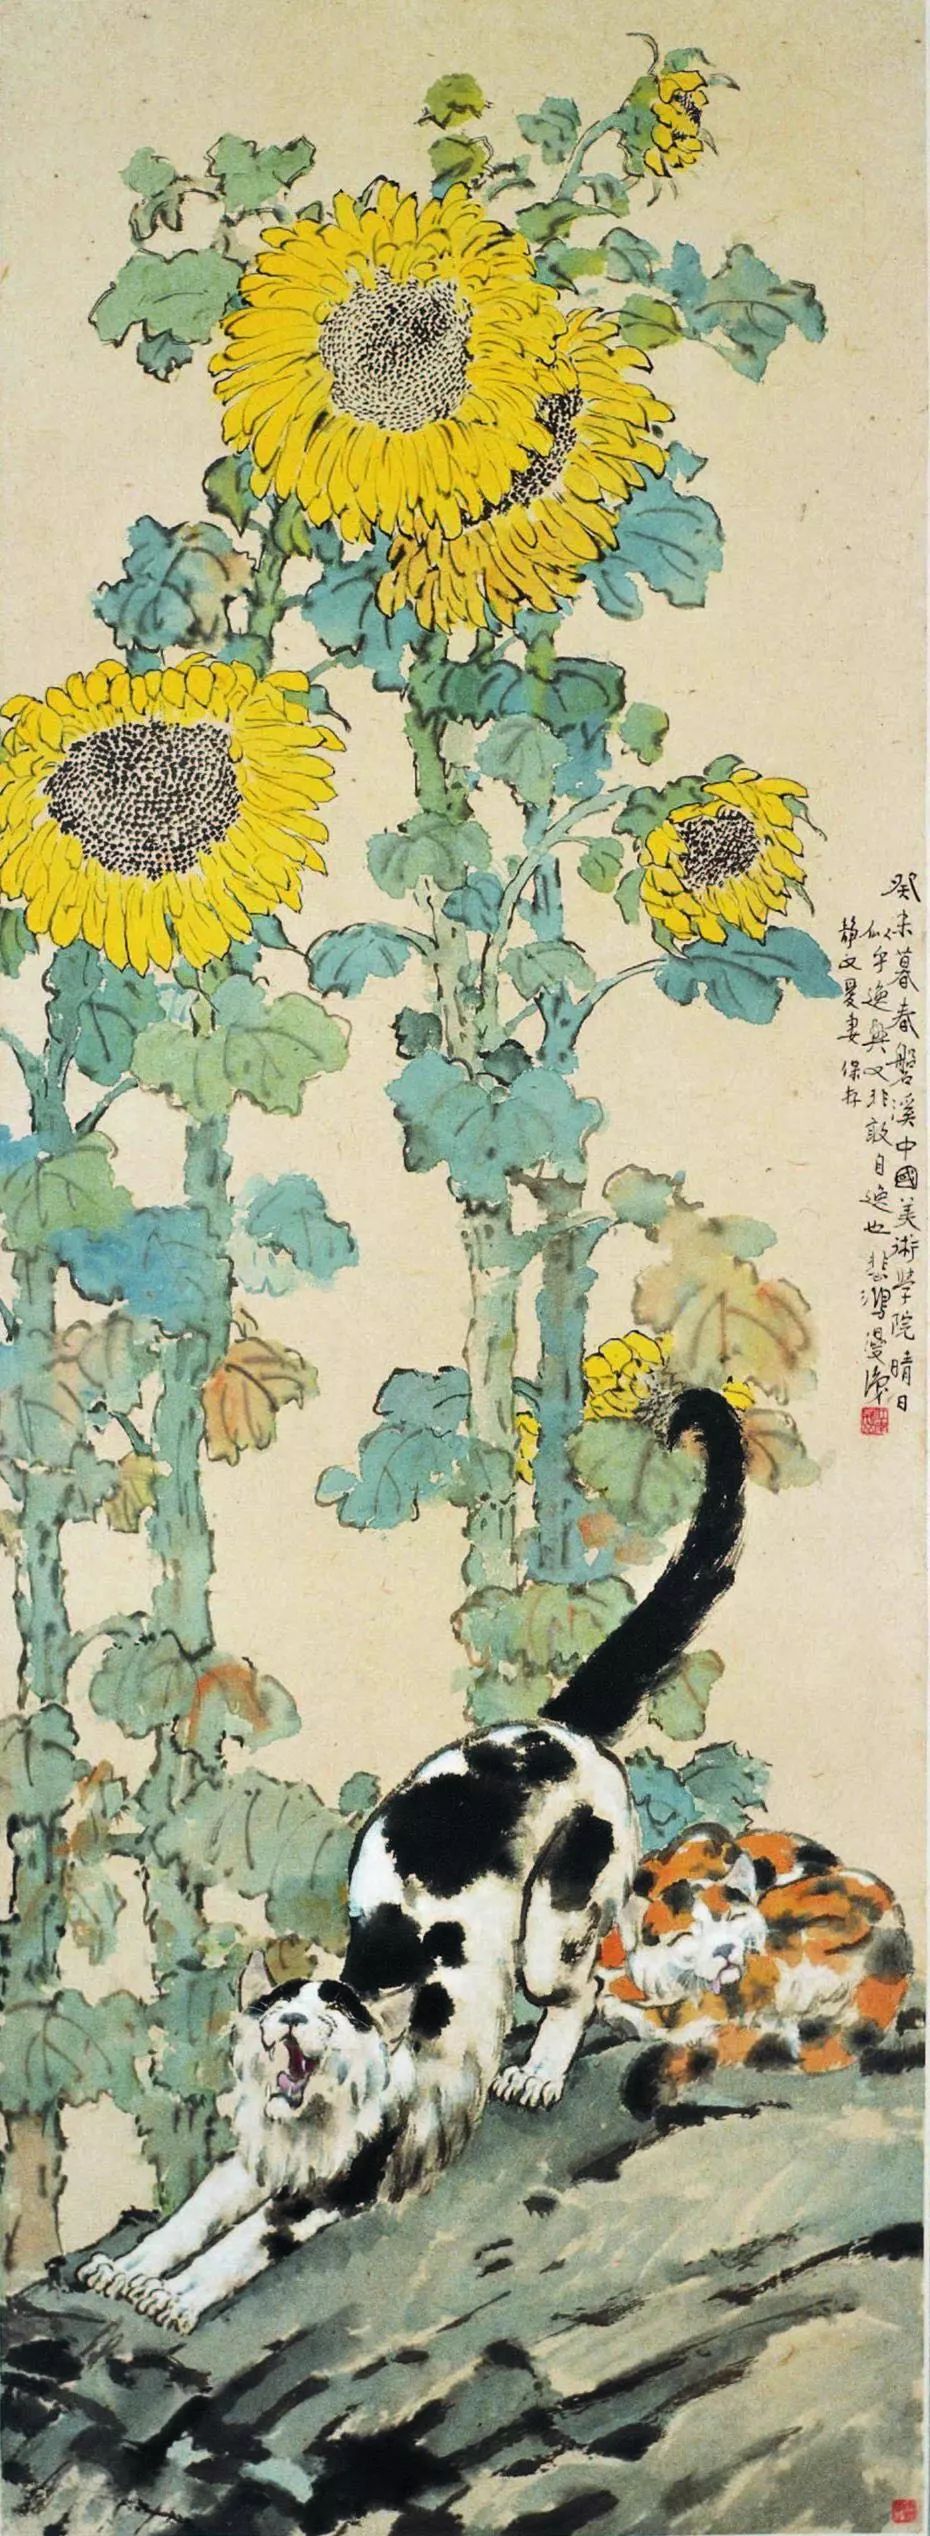 癸未暮春磐溪中國美術學院晴日
似乎逸興又非敢自逸也 悲鴻漫寫
靜文愛妻 保存